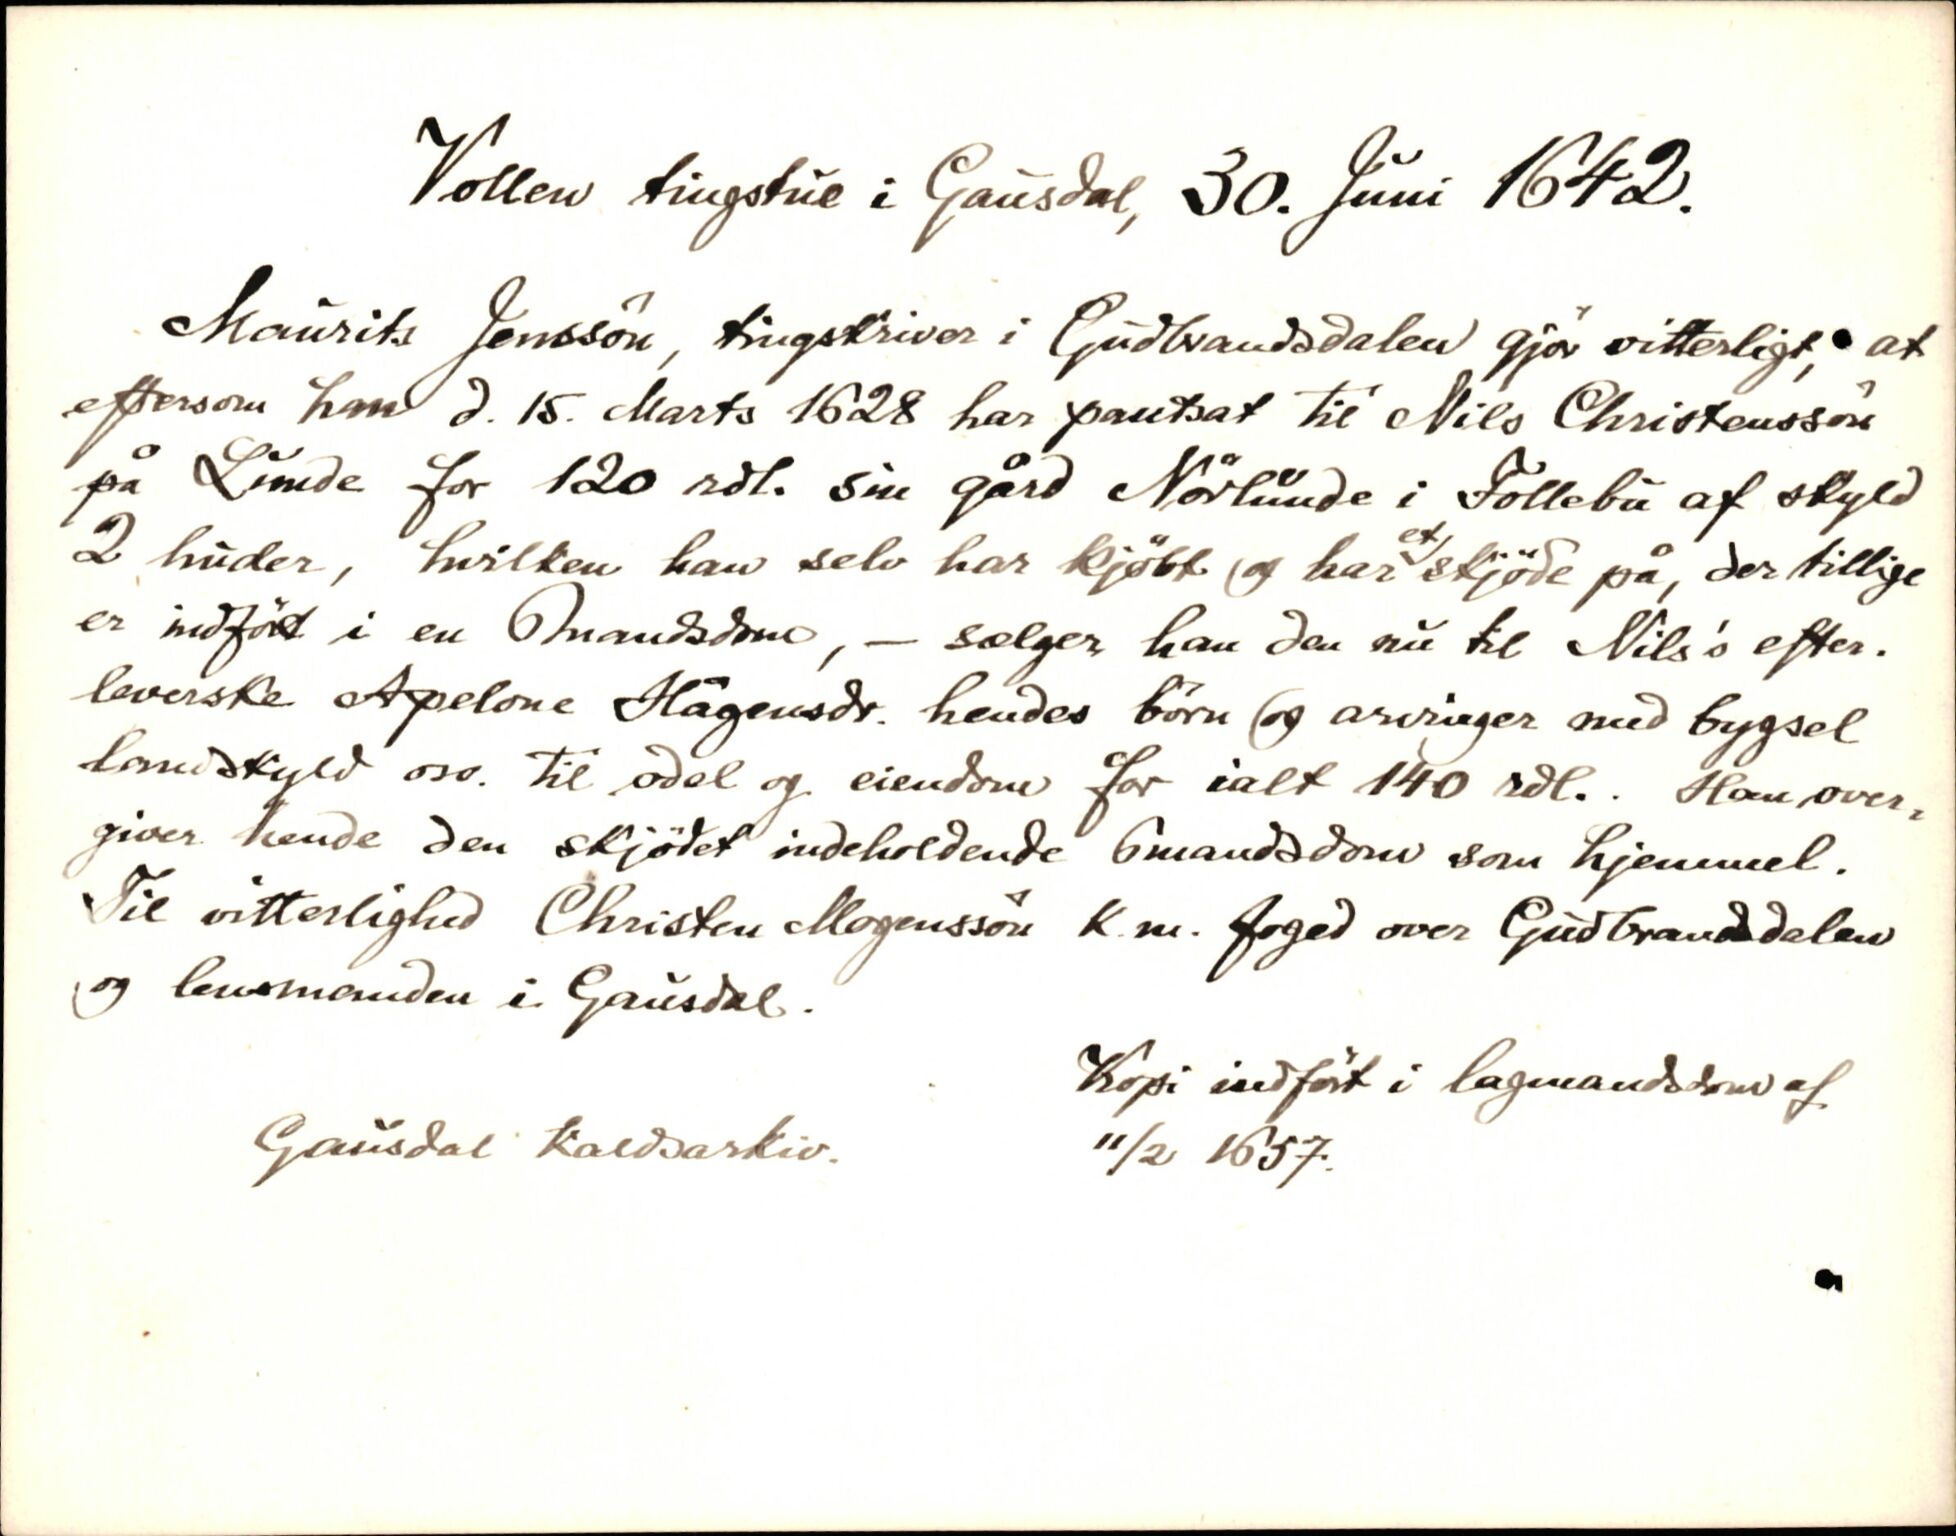 Vollen tingstue i Gausdal, 30. Juni 1642.
Maurits Jenssön, tingskriver i Gudbrandsdalen gjör vitterligt, at
eftersom han d. 15. Marts 1628 har pantsat til Nils Christenssön
på Lunde for 120 rdl. sin gård Nörlunde i Follebu af skyld
2 huder, hvilken han selv har kjöbt og har et skjöde på, der tillige
er indfört i en 6mandsdom, — sælger han den nu til Nils's efter-
leverske Apelone Hågensdr. hendes börn og arvinger med bygsel
landskyld osv. til odel og eiendom for ialt 140 rdl.. Han over-
giver hende den skjödet indeholdende 6mandsdom som hjemmel.
Til vitterlighed Christen Mogenssön K. m. foged over Gudbrandsdalen
og lensmanden i Gausdal.
Kopi indfört i lagmandsdom af
11/2 1657.
Gausdal kaldsarkiv.